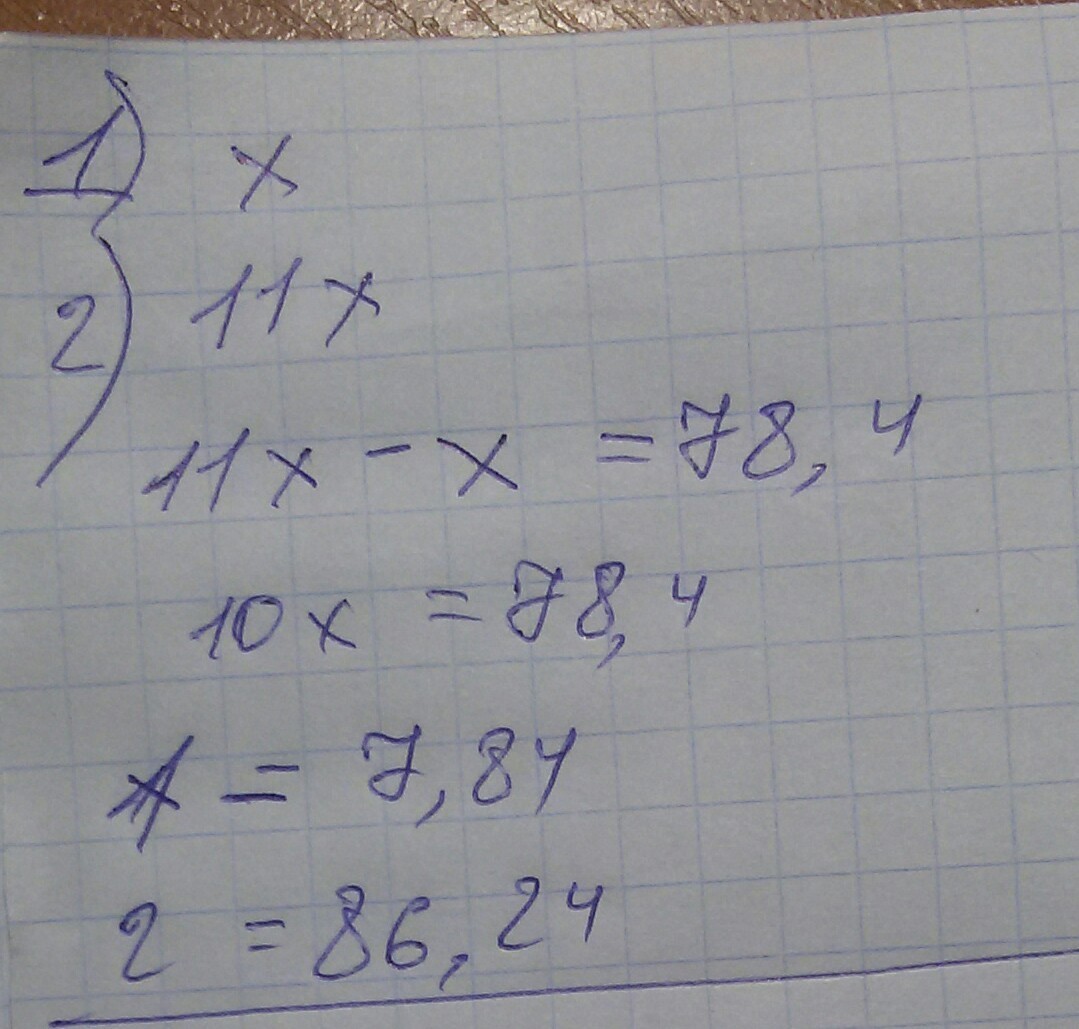 1) x
2) 11x
11x - x = 78,4
10x = 78,4
x = 7,84
2 = 86,24